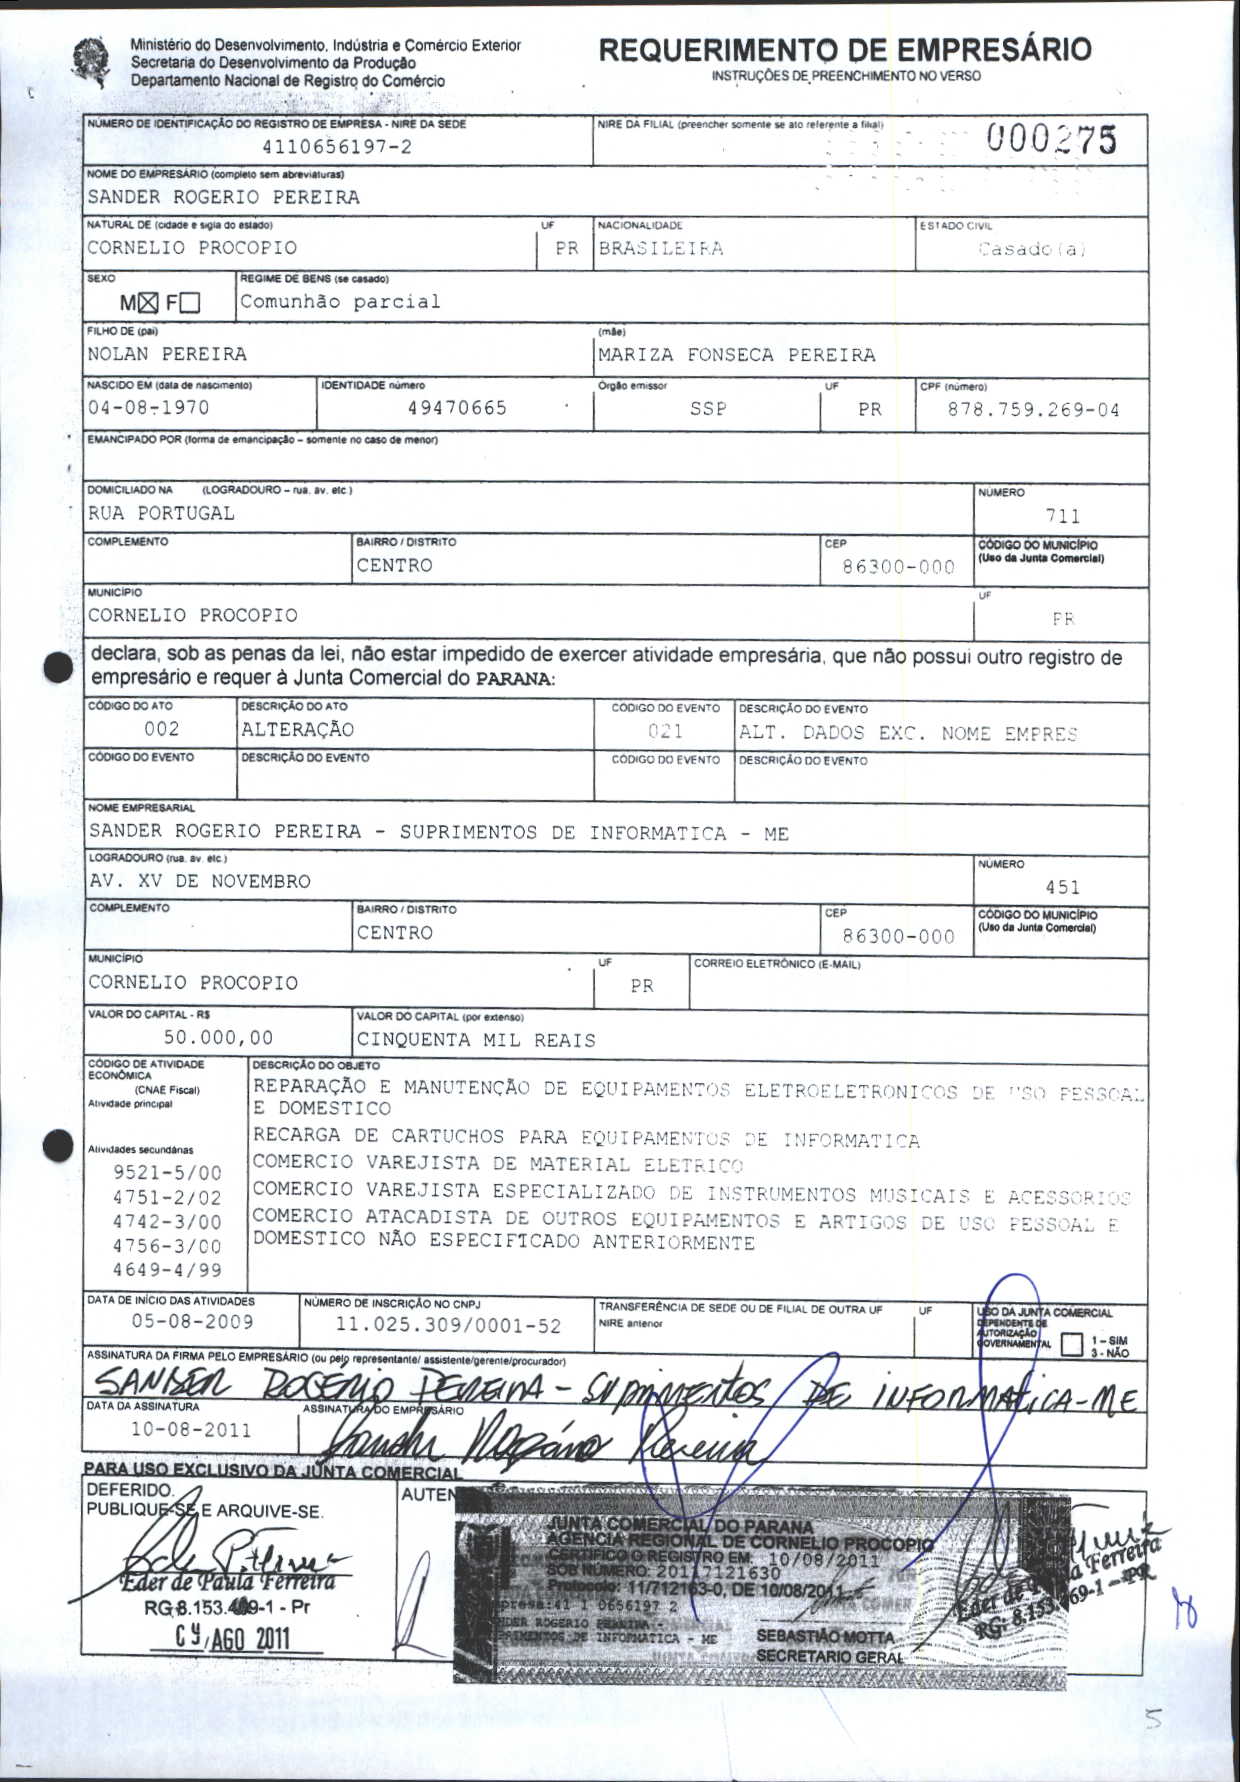 Ministério do Desenvolvimento, Indústria e Comércio Exterior
Secretaria do Desenvolvimento da Produção
Departamento Nacional de Registro do Comércio
REQUERIMENTO DE EMPRESÁRIO
INSTRUÇÕES DE PREENCHIMENTO NO VERSO
NÚMERO DE IDENTIFICAÇÃO DO REGISTRO DE EMPRESA - NIRE DA SEDE
4110656197-2
NIRE DA FILIAL (preencher somente se ato referente a filial)
000275
NOME DO EMPRESÁRIO (completo sem abreviaturas)
SANDER ROGERIO PEREIRA
NATURAL DE (cidade e sigla do estado) UF NACIONALIDADE ESTADO CIVIL
CORNELIO PROCOPIO PR BRASILEIRA Casado(a)
SEXO REGIME DE BENS (se casado)
M☒ F☐ Comunhão parcial
FILHO DE (pai) (mãe)
NOLAN PEREIRA MARIZA FONSECA PEREIRA
NASCIDO EM (data de nascimento) IDENTIDADE número Órgão emissor UF CPF (número)
04-08-1970 49470665 SSP PR 878.759.269-04
EMANCIPADO POR (forma de emancipação – somente no caso de menor)
DOMICILIADO NA (LOGRADOURO – rua, av, etc.) NÚMERO
RUA PORTUGAL 711
COMPLEMENTO BAIRRO / DISTRITO CEP CÓDIGO DO MUNICÍPIO
(Uso da Junta Comercial)
CENTRO 86300-000
MUNICÍPIO UF
CORNELIO PROCOPIO PR
declara, sob as penas da lei, não estar impedido de exercer atividade empresária, que não possui outro registro de
empresário e requer à Junta Comercial do PARANA:
CÓDIGO DO ATO DESCRIÇÃO DO ATO CÓDIGO DO EVENTO DESCRIÇÃO DO EVENTO
002 ALTERAÇÃO 021 ALT. DADOS EXC. NOME EMPRES
CÓDIGO DO EVENTO DESCRIÇÃO DO EVENTO CÓDIGO DO EVENTO DESCRIÇÃO DO EVENTO
NOME EMPRESARIAL
SANDER ROGERIO PEREIRA - SUPRIMENTOS DE INFORMATICA - ME
LOGRADOURO (rua, av, etc.) NÚMERO
AV. XV DE NOVEMBRO 451
COMPLEMENTO BAIRRO / DISTRITO CEP CÓDIGO DO MUNICÍPIO
(Uso da Junta Comercial)
CENTRO 86300-000
MUNICÍPIO UF CORREIO ELETRÔNICO (E-MAIL)
CORNELIO PROCOPIO PR
VALOR DO CAPITAL - R$ VALOR DO CAPITAL (por extenso)
50.000,00 CINQUENTA MIL REAIS
CÓDIGO DE ATIVIDADE
ECONÔMICA
(CNAE Fiscal)
Atividade principal
Atividades secundárias
9521-5/00
4751-2/02
4742-3/00
4756-3/00
4649-4/99
DESCRIÇÃO DO OBJETO
REPARAÇÃO E MANUTENÇÃO DE EQUIPAMENTOS ELETROELETRONICOS DE USO PESSOAL
E DOMESTICO
RECARGA DE CARTUCHOS PARA EQUIPAMENTOS DE INFORMATICA
COMERCIO VAREJISTA DE MATERIAL ELETRICO
COMERCIO VAREJISTA ESPECIALIZADO DE INSTRUMENTOS MUSICAIS E ACESSORIOS
COMERCIO ATACADISTA DE OUTROS EQUIPAMENTOS E ARTIGOS DE USO PESSOAL E
DOMESTICO NÃO ESPECIFICADO ANTERIORMENTE
DATA DE INÍCIO DAS ATIVIDADES NÚMERO DE INSCRIÇÃO NO CNPJ TRANSFERÊNCIA DE SEDE OU DE FILIAL DE OUTRA UF UF
05-08-2009 11.025.309/0001-52 NIRE anterior
USO DA JUNTA COMERCIAL
DEPENDENTE DE
AUTORIZAÇÃO
GOVERNAMENTAL
1 – SIM
3 - NÃO
ASSINATURA DA FIRMA PELO EMPRESÁRIO (ou pelo representante/ assistente/gerente/procurador)
SANDER ROGÉRIO PEREIRA - SUPRIMENTOS DE INFORMATICA - ME
DATA DA ASSINATURA ASSINATURA DO EMPRESÁRIO
10-08-2011 Sander Rogério Pereira
PARA USO EXCLUSIVO DA JUNTA COMERCIAL
DEFERIDO.
PUBLIQUE-SE E ARQUIVE-SE.
Eder de Paula Ferreira
RG 8.153.469-1 - Pr
AGO 2011
AUTEN
JUNTA COMERCIAL DO PARANA
AGENCIA REGIONAL DE CORNELIO PROCOPIO
CERTIFICO O REGISTRO EM: 10/08/2011
SOB NÚMERO: 20117121630
Protocolo: 11/712163-0, DE 10/08/2011
presa:41 1 0656197 2
NDER ROGERIO PEREIRA -
PRIMENTOS DE INFORMATICA - ME
SEBASTIÃO MOTTA
SECRETARIO GERAL
Eder de Paula Ferreira
RG: 8.153.469-1 - PR
5